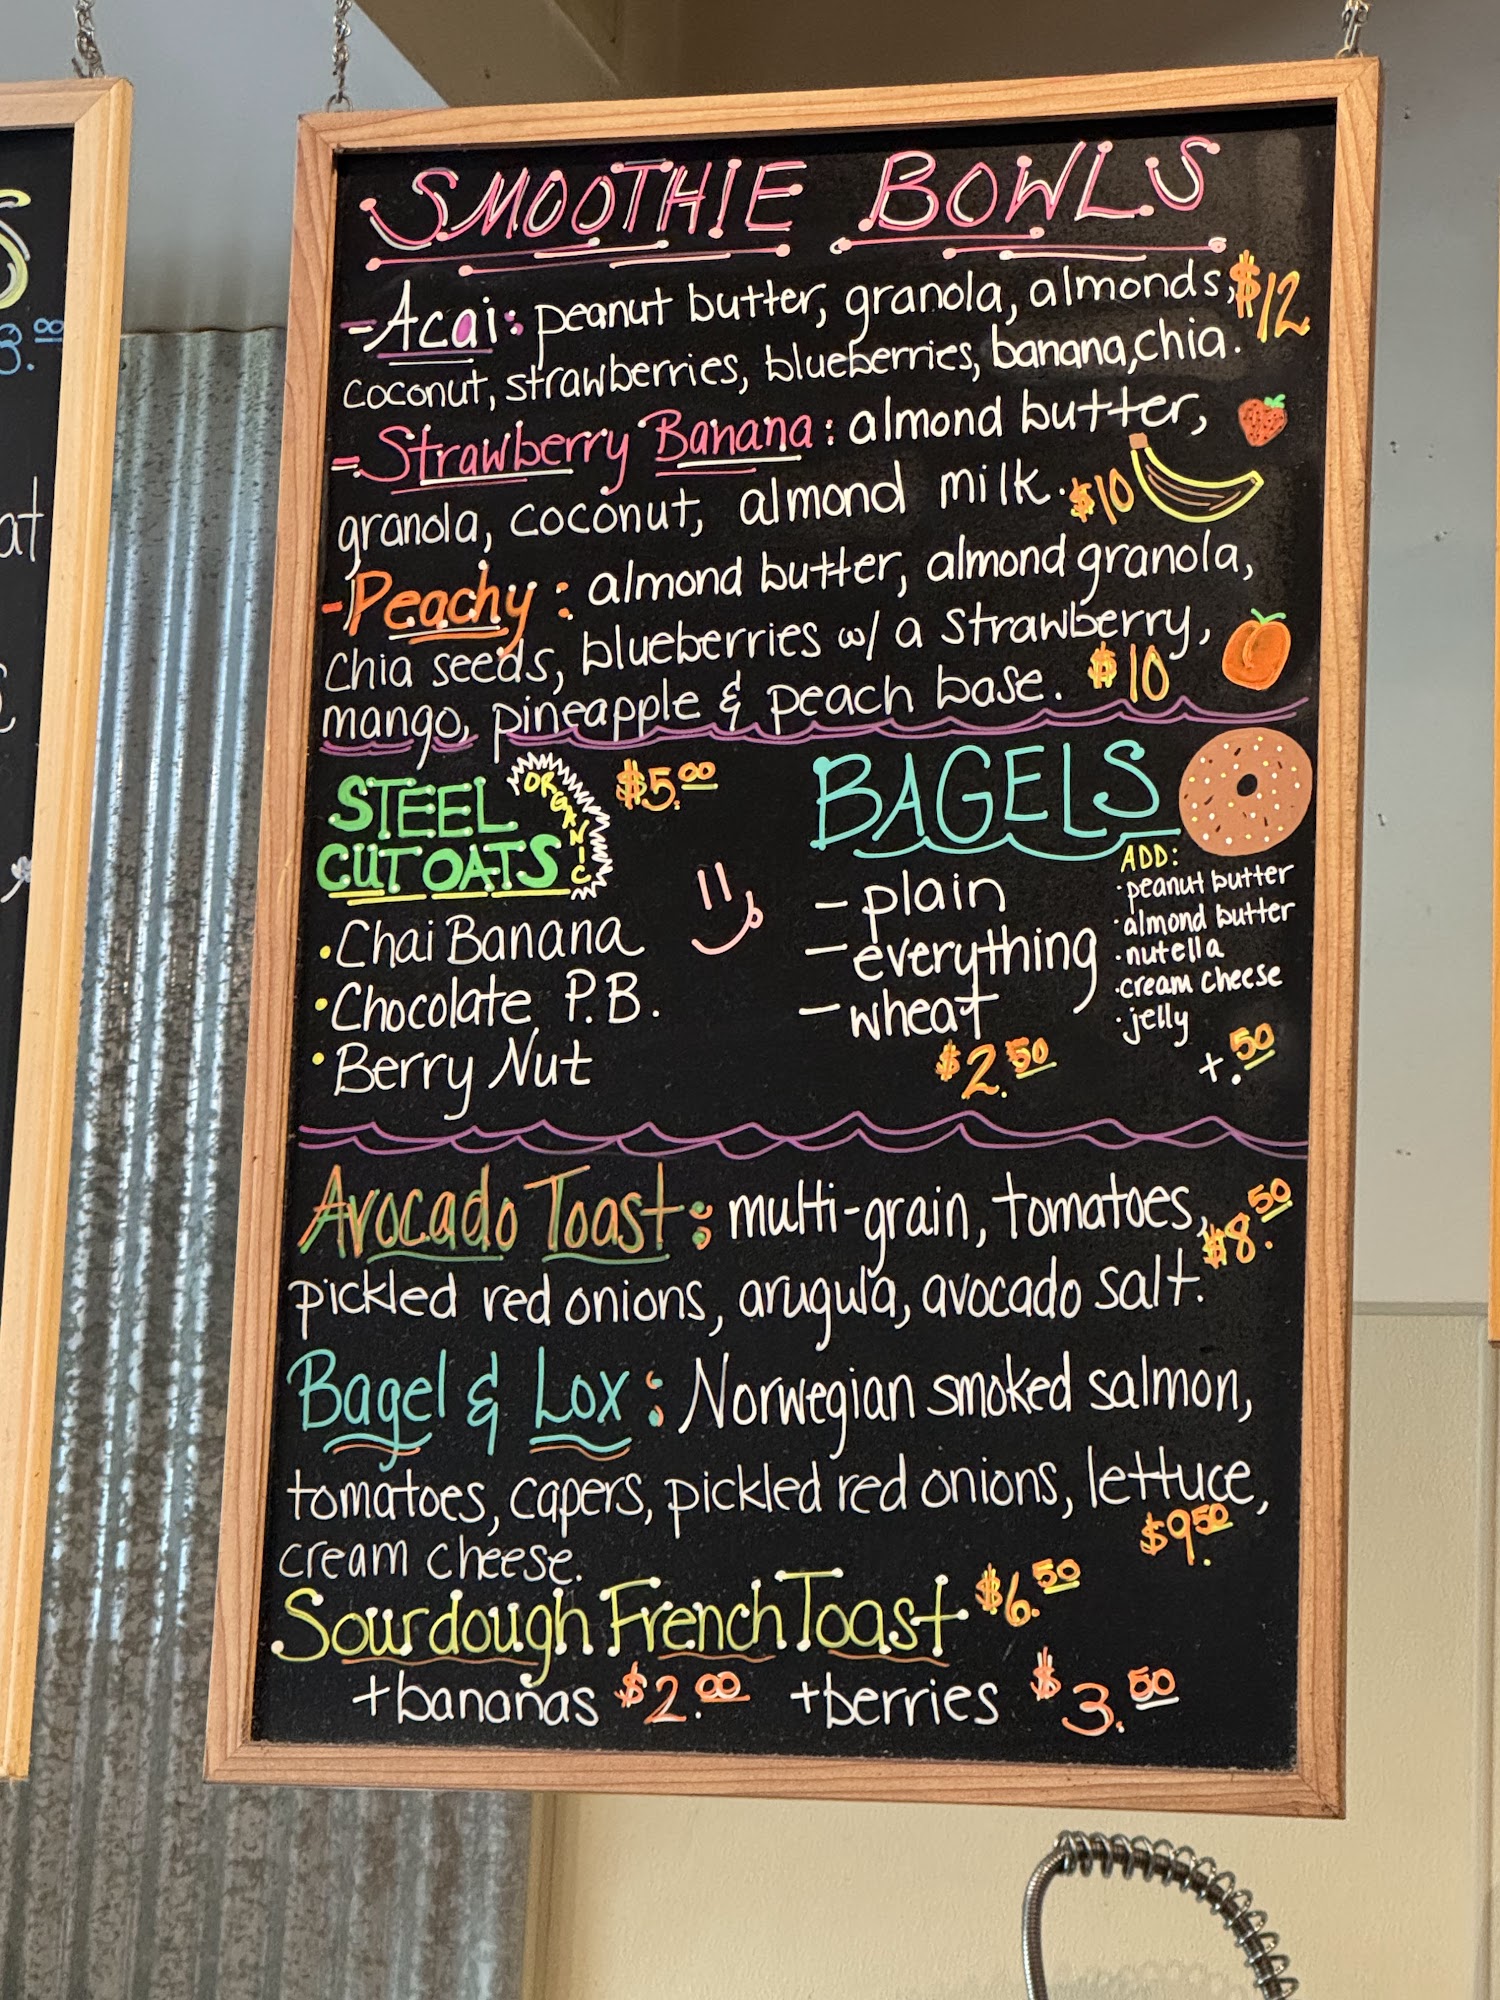 SMOOTHIE BOWLS
-Acai: peanut butter, granola, almonds, $12
coconut, strawberries, blueberries, banana, chia.
-Strawberry Banana: almond butter,
granola, coconut, almond milk. $10
-Peachy: almond butter, almond granola,
chia seeds, blueberries w/ a strawberry,
mango, pineapple & peach base. $10
STEEL CUT OATS
ORGANIC
$5.00
• Chai Banana
• Chocolate P.B.
• Berry Nut
BAGELS
- plain
- everything
- wheat
$2.50
ADD:
· peanut butter
· almond butter
· nutella
· cream cheese
· jelly
+.50
Avocado Toast: multi-grain, tomatoes, $8.50
pickled red onions, arugula, avocado salt.
Bagel & Lox: Norwegian smoked salmon,
tomatoes, capers, pickled red onions, lettuce,
cream cheese. $9.50
Sourdough French Toast $6.50
+bananas $2.00 +berries $3.50